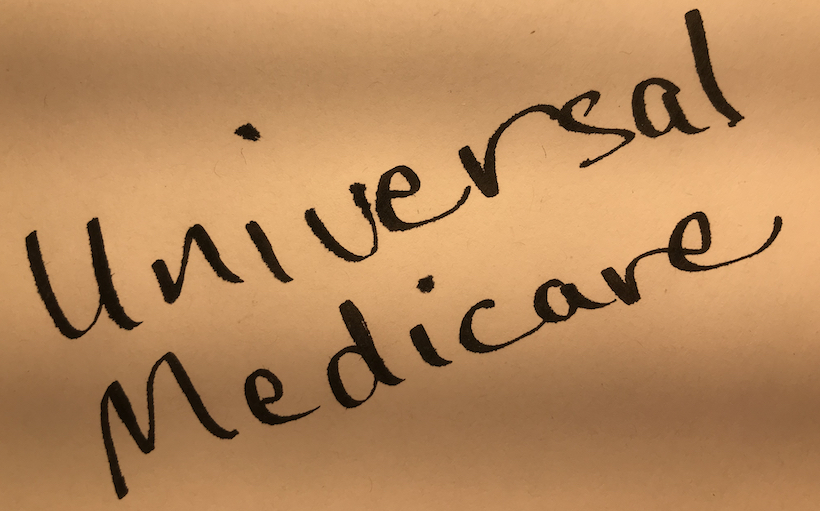 Universal
Medicare